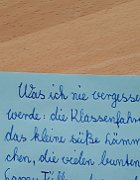 Was ich nie vergesse
werde: die Klassenfahr
das kleine süße Lämm
chen, die vielen bunten